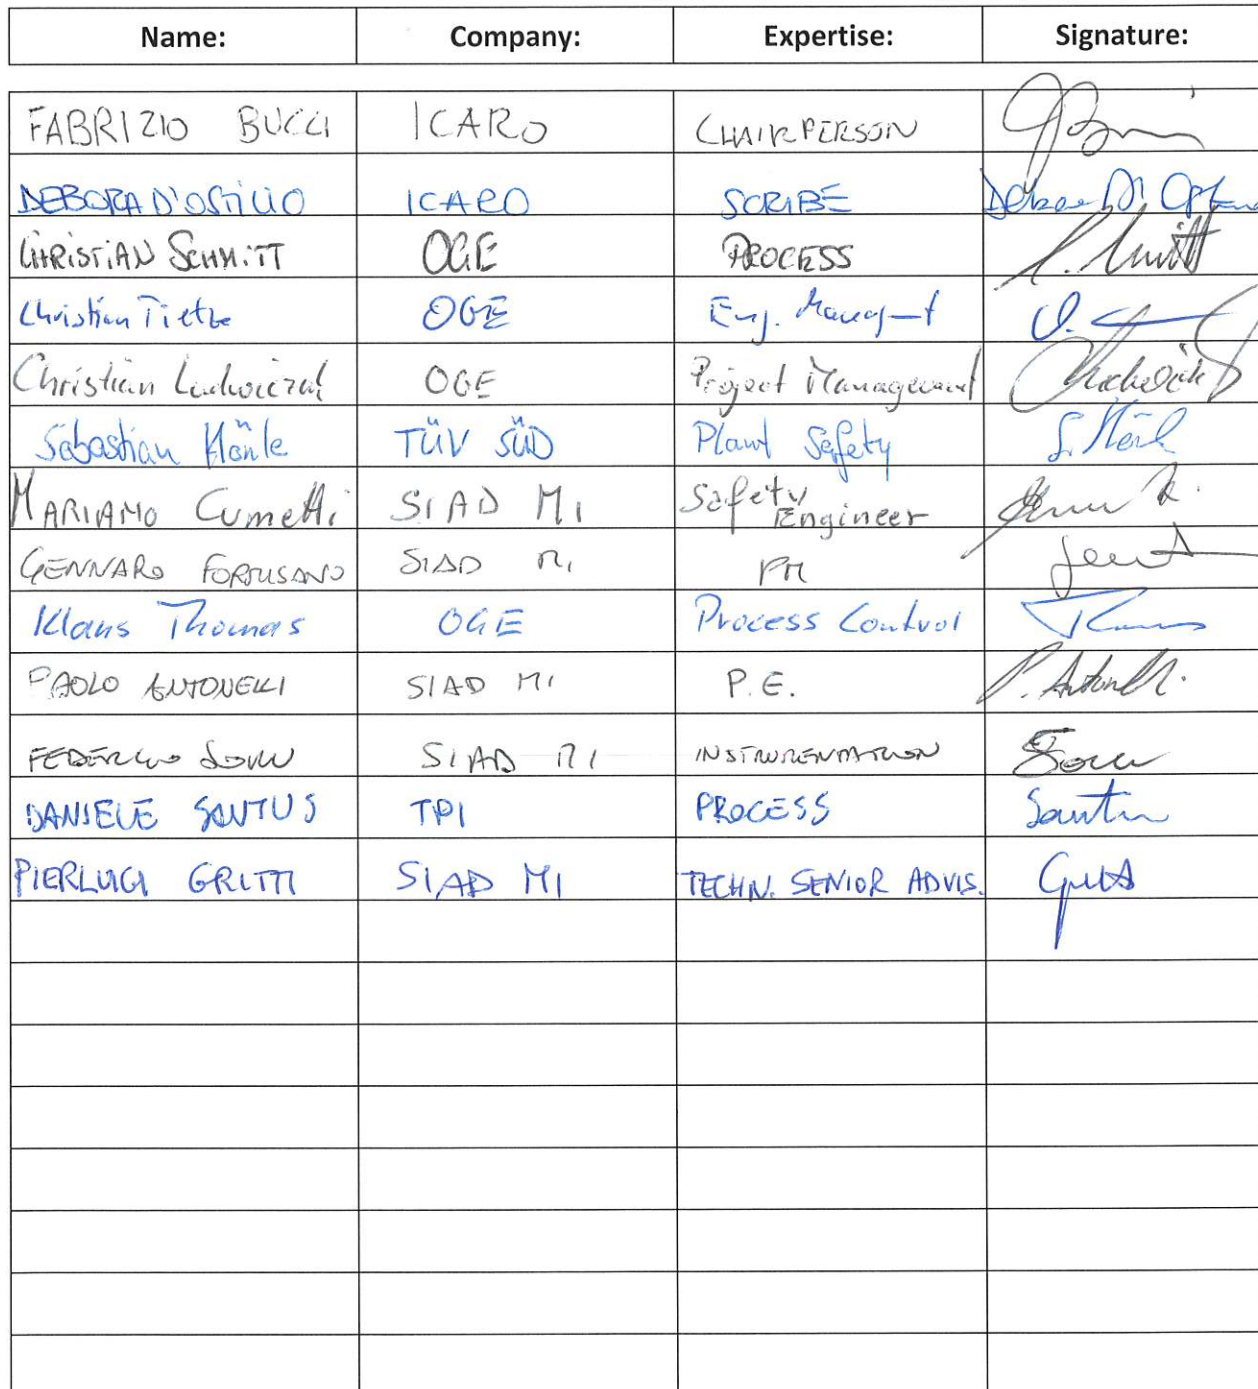 Name: Company: Expertise: Signature:
FABRIZIO BUCCI ICARO CHAIRPERSON
DEBORA D'OSTILIO ICARO SCRIBE
CHRISTIAN SCHMITT OGE PROCESS
Christian Tietze OGE Eng.
Christian OGE Project Management
Sebastian TÜV SÜD Plant Safety
MARIANO Cumetti SIAD MI Safety Engineer
GENNARO SIAD MI PM
Klaus Thomas OGE Process Control
PAOLO ANTONELLI SIAD MI P.E. P. Antonelli
FEDERICO SIAD MI INSTRUMENTATION
DANIELE SANTUS TPI PROCESS
PIERLUIGI GRITTI SIAD MI TECHN. SENIOR ADVIS.